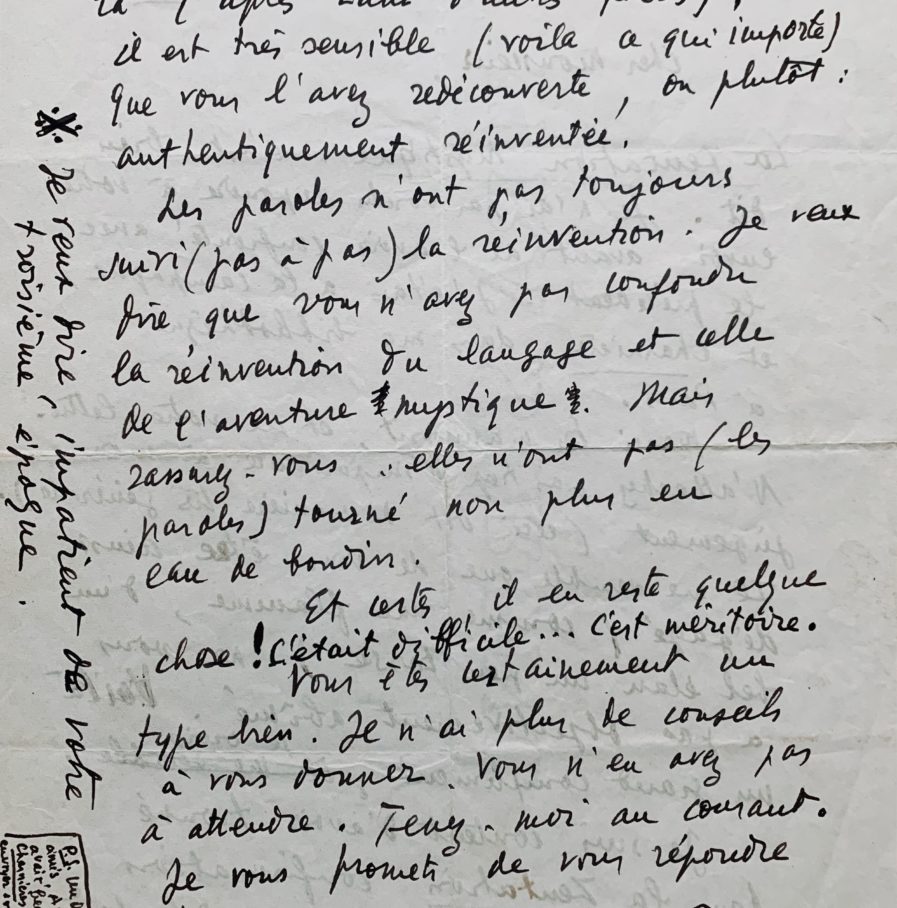 la (après
il est très sensible (voila ce qui importe)
que vous l'avez redécouverte, ou plutôt :
authentiquement réinventée.
Les paroles n'ont pas toujours
suivi (pas à pas) la réinvention. Je veux
dire que vous n'avez pas confondu
la réinvention du langage et celle
de l'aventure mystique. Mais
rassurez-vous : elles n'ont pas (les
paroles) tourné non plus en
eau de boudin.
Et certes, il en reste quelque
chose ! C'était difficile... C'est méritoire.
Vous êtes certainement un
type bien. Je n'ai plus de conseils
à vous donner. Vous n'en avez pas
à attendre. Tenez-moi au courant.
Je vous promets de vous répondre
Je veux dire, impatient de votre
troisième époque.
P.S. Un
amis, A
avait
Charnières